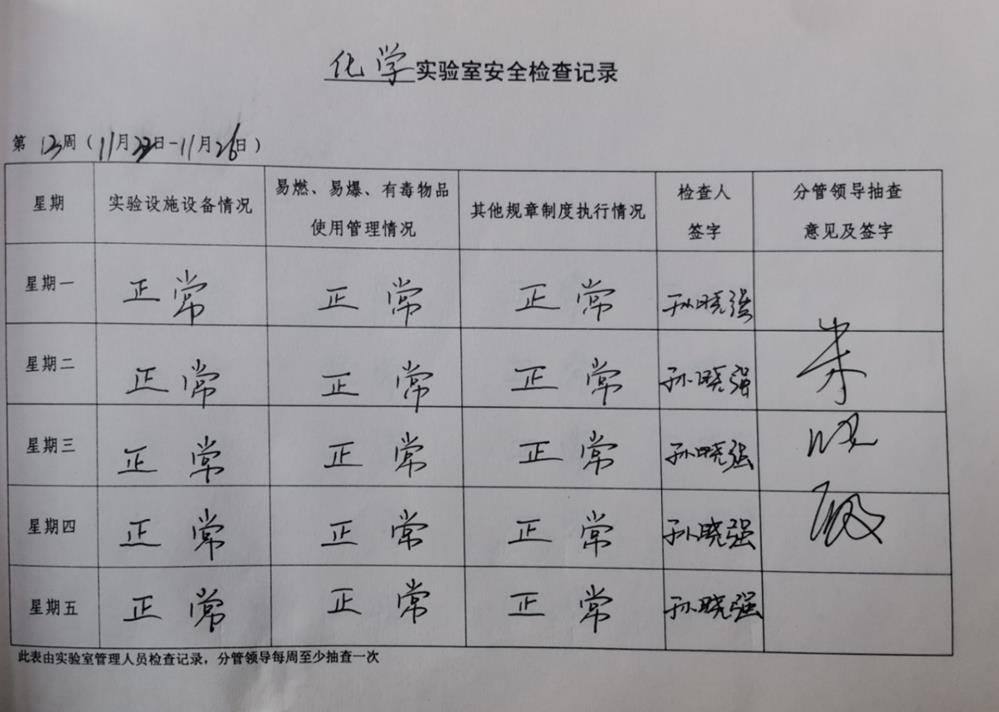 化学实验室安全检查记录
第13周(11月22日-11月26日)
星期 实验设施设备情况 易燃、易爆、有毒物品使用管理情况 其他规章制度执行情况 检查人签字 分管领导抽查意见及签字
星期一 正常 正常 正常 孙晓强
星期二 正常 正常 正常 孙晓强
星期三 正常 正常 正常 孙晓强
星期四 正常 正常 正常 孙晓强
星期五 正常 正常 正常 孙晓强
此表由实验室管理人员检查记录，分管领导每周至少抽查一次